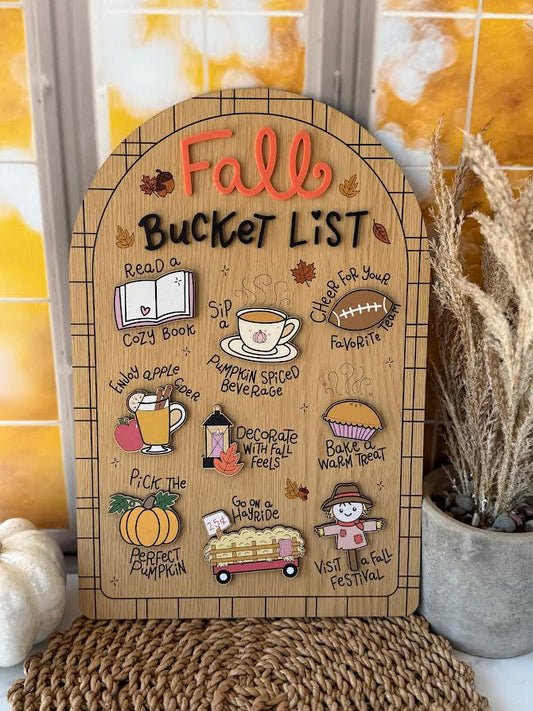 Fall
BUCKET LIST
READ A
COZY BOOK
SIP
A
PUMPKIN SPICED
BEVERAGE
CHEER FOR YOUR
FAVORITE TEAM
ENJOY APPLE CIDER
DECORATE
WITH FALL
FEELS
BAKE A
WARM TREAT
PICK THE
PERFECT
PUMPKIN
GO ON A
HAYRIDE
25¢
VISIT A FALL
FESTIVAL